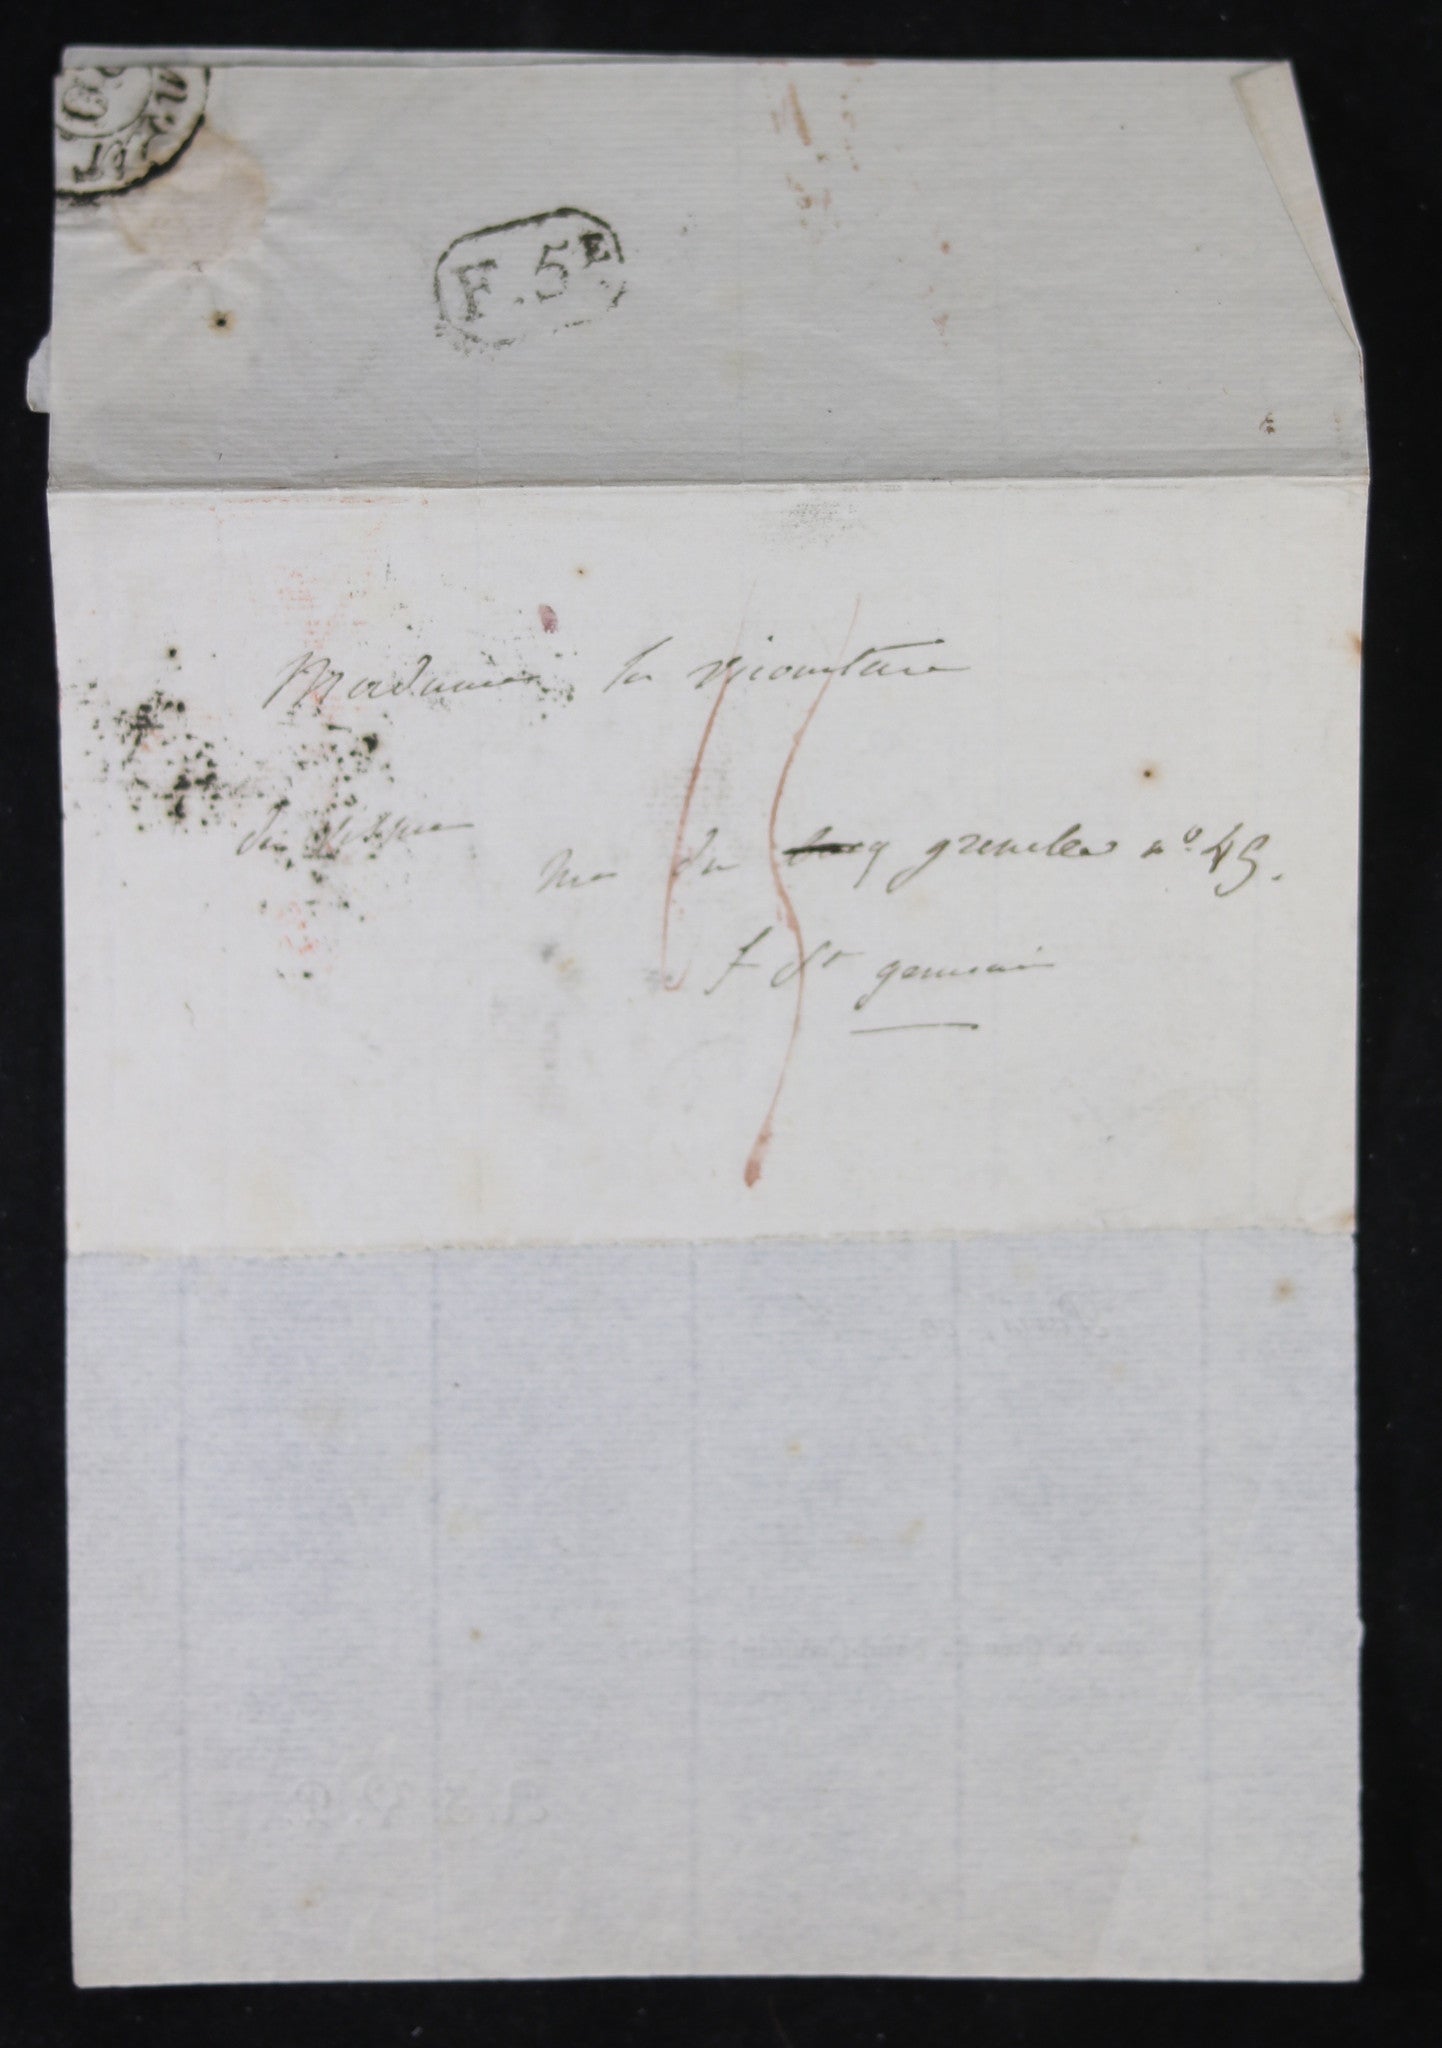 F. 5E
Madame la vicomtesse
de
rue du grenelle n° 49.
f St germain
15